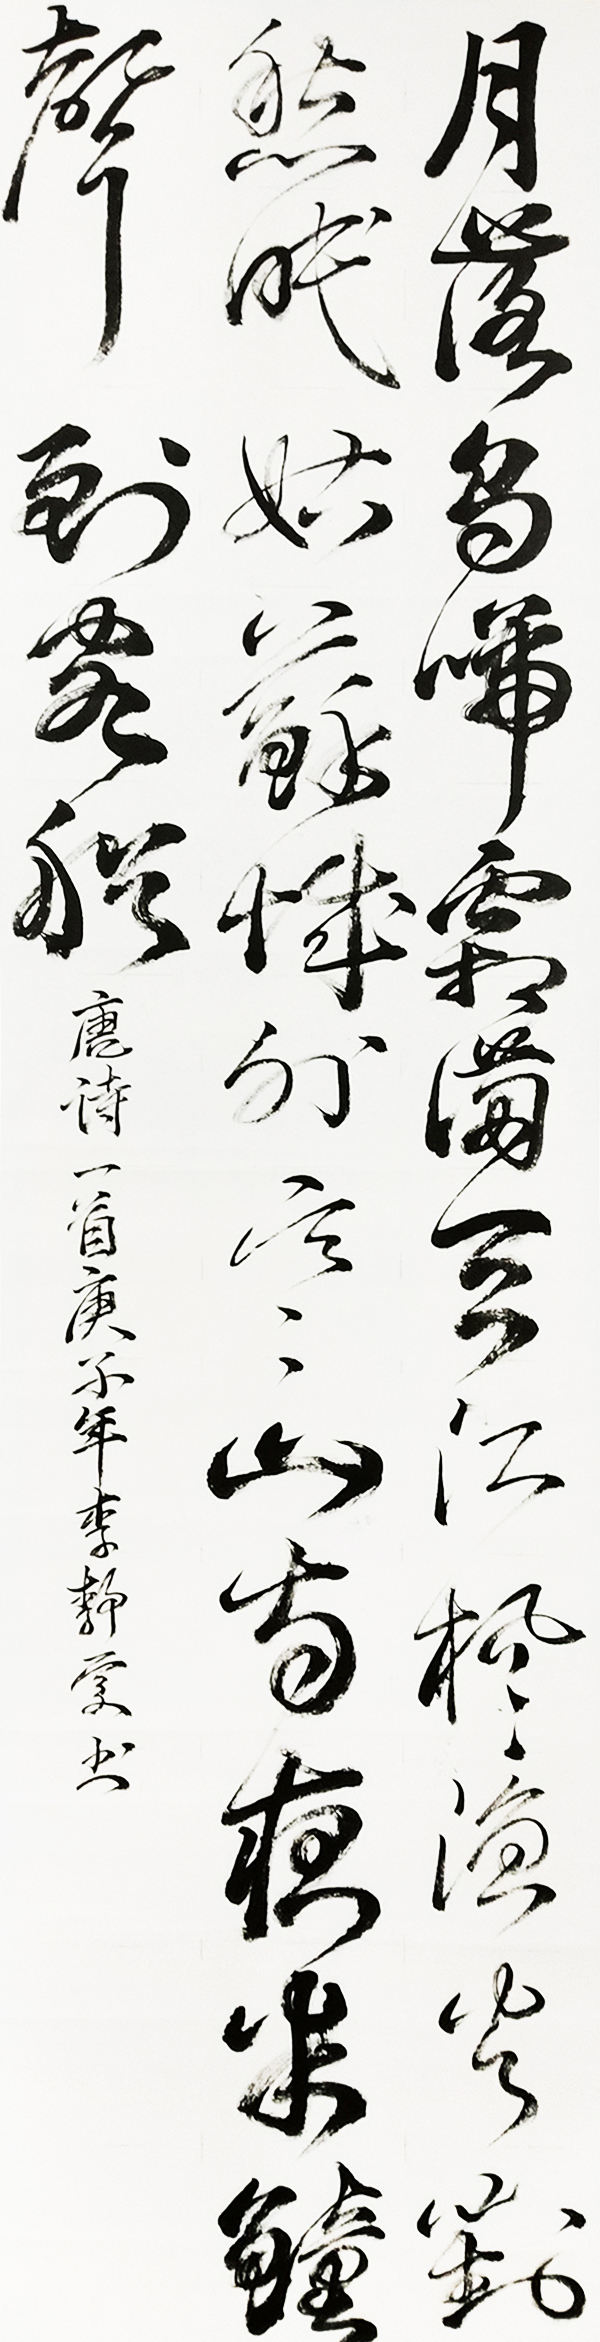 月落烏啼霜滿天江楓漁火對
愁眠姑蘇城外寒山寺夜半鐘
聲到客船
唐诗一首庚子年李靜书